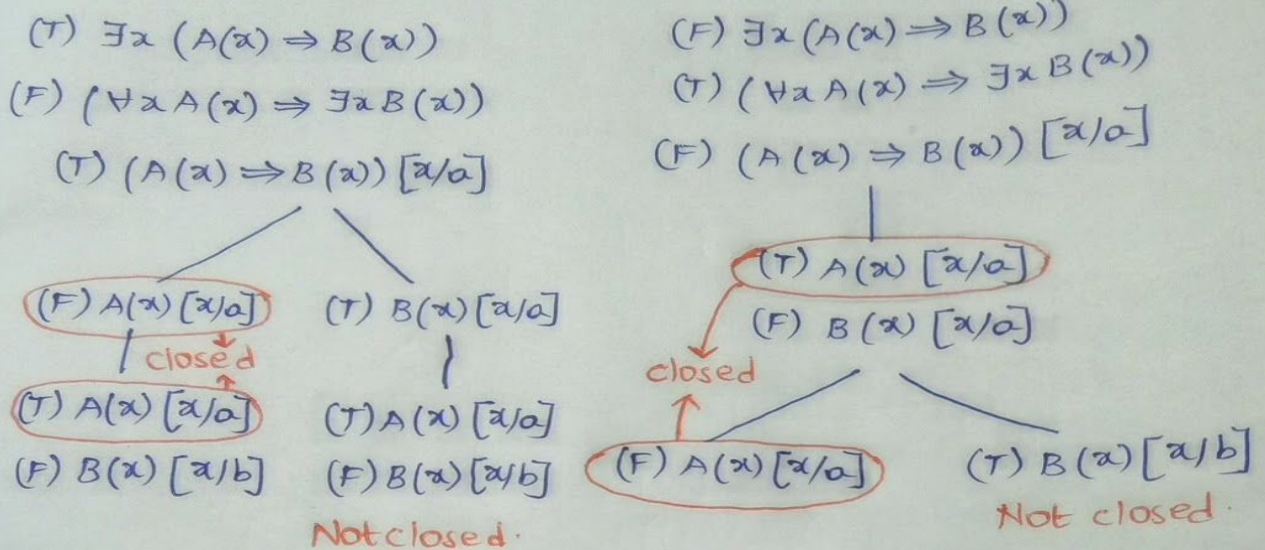 (T) ∃x (A(x) ⇒ B(x))
(F) (∀x A(x) ⇒ ∃x B(x))
(T) (A(x) ⇒ B(x)) [x/a]
(F) A(x) [x/a]
(T) B(x) [x/a]
closed
(T) A(x) [x/a]
(F) B(x) [x/b]
(T) A(x) [x/a]
(F) B(x) [x/b]
Not closed.
(F) ∃x (A(x) ⇒ B(x))
(T) (∀x A(x) ⇒ ∃x B(x))
(F) (A(x) ⇒ B(x)) [x/a]
(T) A(x) [x/a]
(F) B(x) [x/a]
closed
(F) A(x) [x/a]
(T) B(x) [x/b]
Not closed.